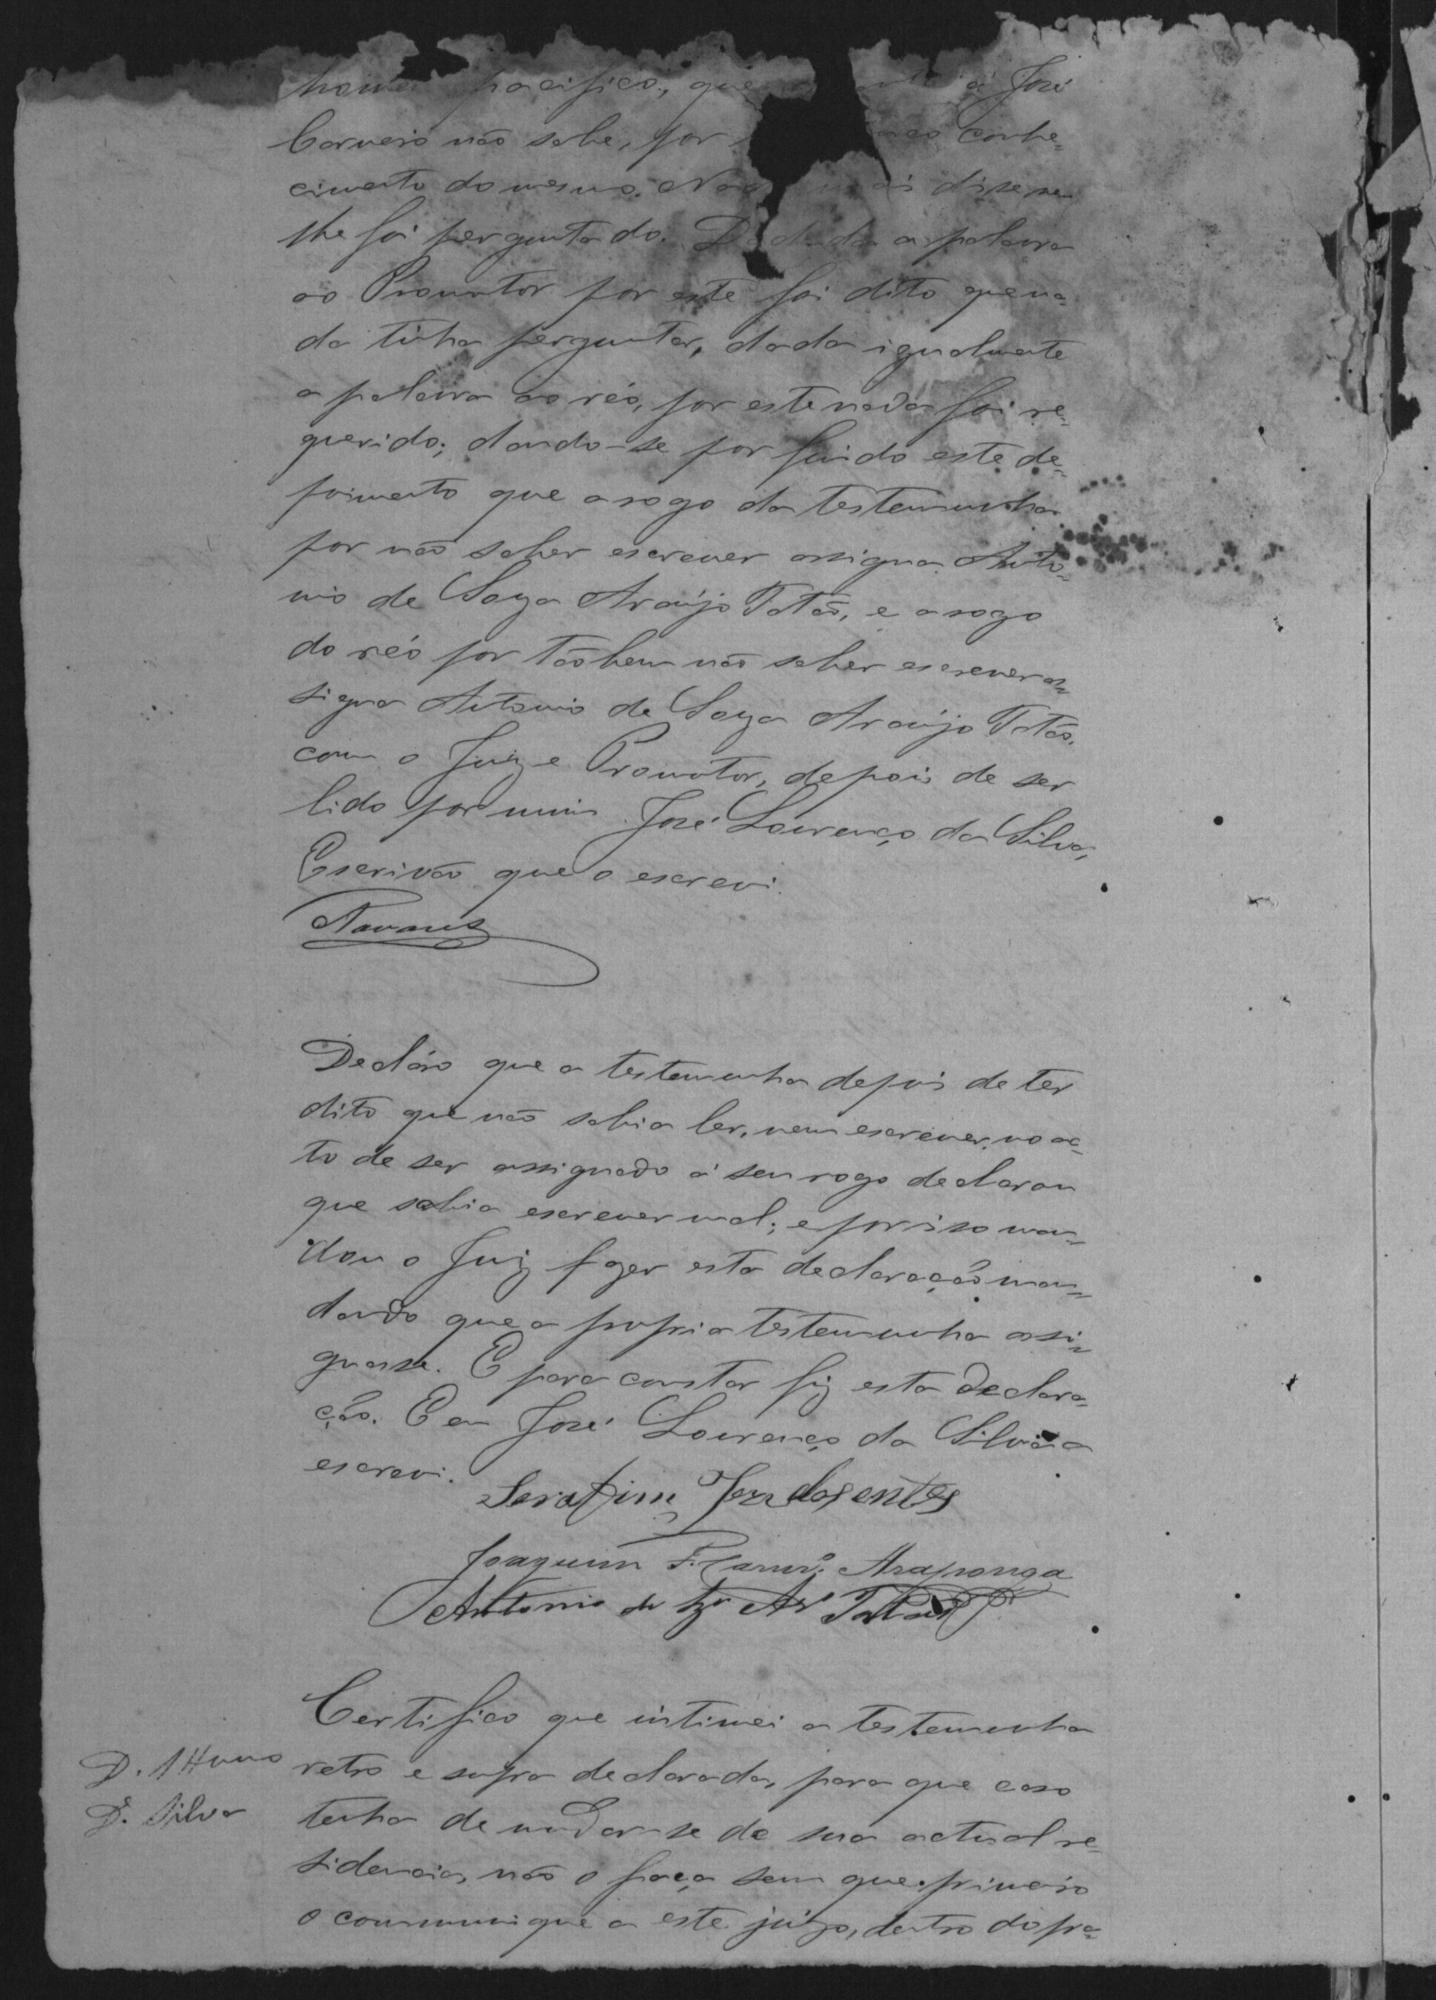 homem pacifico, que á José
Carneiro não sabe, por conhe-
cimento do mesmo. Nada mais disse nem
lhe foi perguntado. Dada a palavra
ao Promotor por este foi dito que na-
da tinha perguntar, dada igualmente
a palavra ao réo, por este nada foi re-
querido; dando-se por findo este de-
poimento que a rogo da testemunha
por não saber escrever assigna Anto-
nio de Souza Araújo Tatão, e a rogo
do réo por tãobem não saber escrever as-
signa Antonio de Souza Araújo Tatão,
com o Juiz e Promotor, depois de ser
lido por mim José Lourenço da Silva,
Escrivão que o escrevi.
Navarro
Decláro que a testemunha depois de ter
dito que não sabia ler, nem escrever, no ac-
to de ser assignado á seu rogo declarou
que sabia escrever mal; e por isso man-
dou o Juiz fazer esta declaração man-
dando que a propria testemunha assi-
gnasse. E para constar fiz esta declara-
ção. E eu José Lourenço da Silva a
escrevi.
Serafim
Joaquim Araponga
Antonio de Sza Aro Tatão
Certifico que intimei a testemunha
retro e supra declarada, para que caso
tenha de mudar-se de sua actual re-
sidencia, não o faça sem que primeiro
o communique a este juizo, dentro do pra-
D. 1
D. Silva